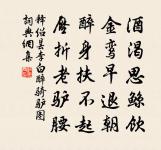 酒渴思鲸饮
金銮早退朝
醉身扶不起
压折老驴腰
释绍昙李白醉骑驴图
词典网集